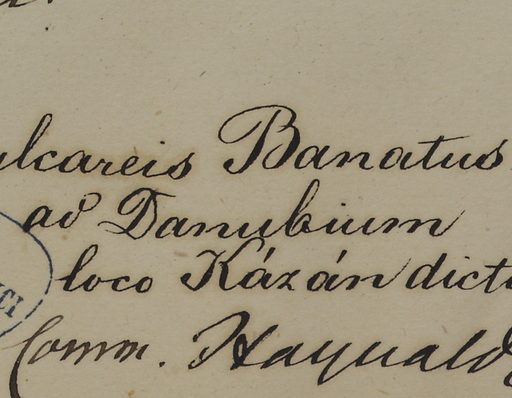 ulcareis Banatus
ad Danubium
loco Kázán dict
Comm. Haynald